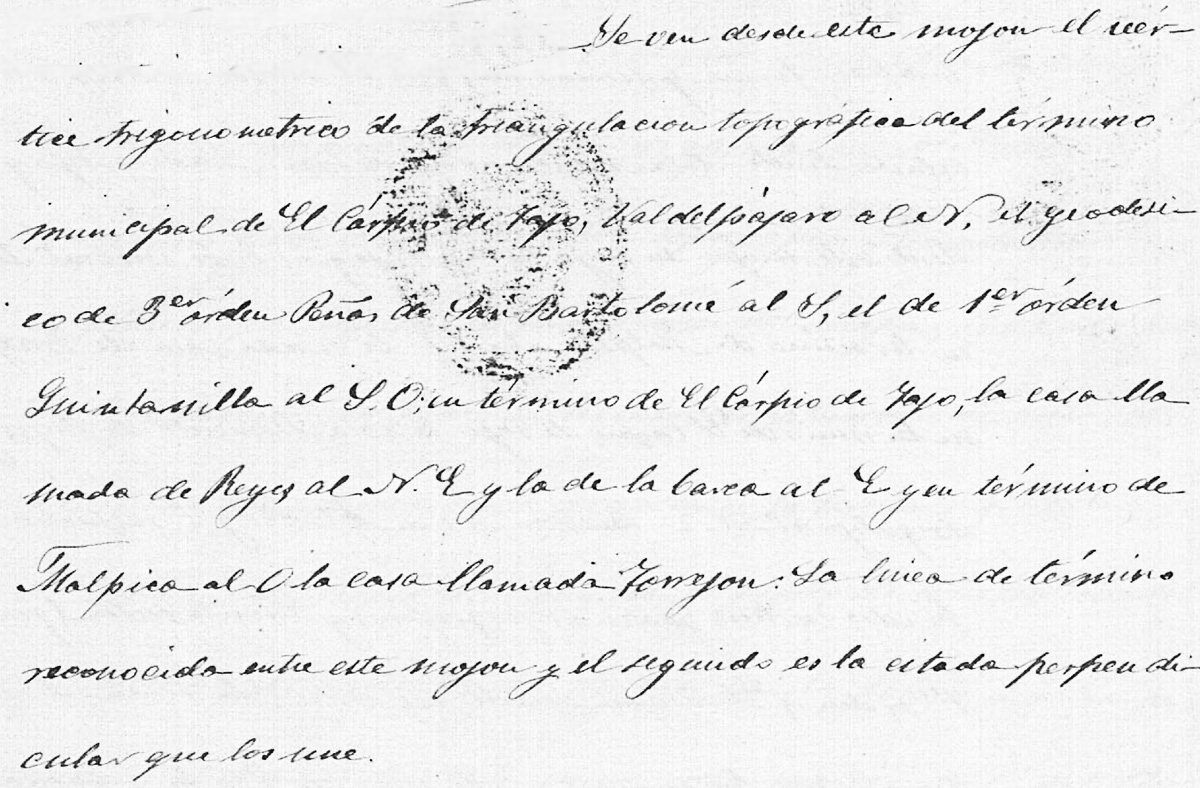 Se ven desde este mojon el vér-
tice trigonometrico de la triangulacion topográfica del término
municipal de El Cárpio de Tajo, Valdelpájaro al N, el geodesi-
co de 3er órden Peñas de San Bartolomé al S, el de 1er órden
Quintanilla al S.O; en término de El Cárpio de Tajo, la casa lla
mada de Reyes al N.E y la de la barca al E y en término de
Malpica al O la casa llamada Torrejon. La linea de término
reconocida entre este mojon y el segundo es la citada perpendi-
cular que los une.